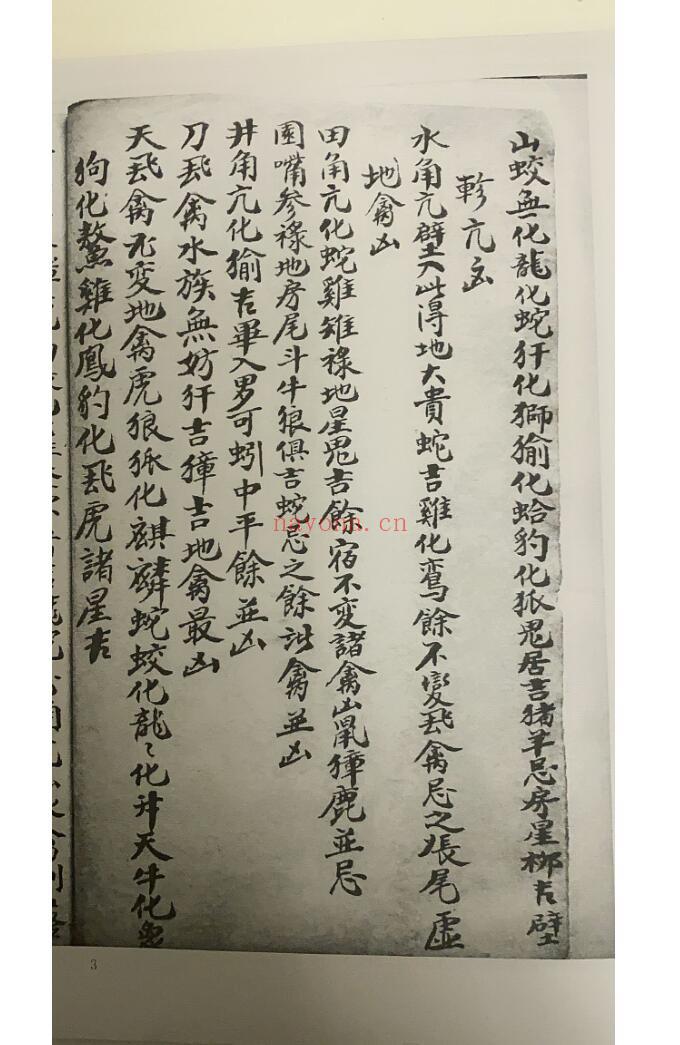 山蛟無化龍化蛇犴化獅㺄化蛤豹化狐鬼居吉猪羊忌房星柳吉壁
軫亢
水角亢壁入此得地大貴蛇吉雞化鸞餘不變飛禽忌之張尾虛
地禽凶
田角亢化蛇雞雉祿地星鬼吉餘宿不变諸禽山鼠獐鹿並忌
園嘴參祿地房尾斗牛狼俱吉蛇忌之餘諸禽並凶
井角亢化㺄吉畢入男可蚓中平餘並凶
刀飛禽水族無妨犴吉獐吉地禽最凶
天飛禽不变地禽虎狼狐化麒麟蛇蛟化龍〻化升天牛化
狗化獒雞化鳳豹化飛虎諸星吉
nayona.cn
3